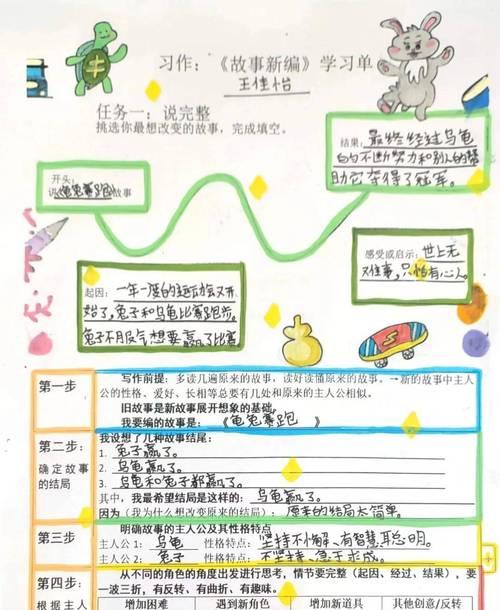 习作：《故事新编》学习单
王佳怡
任务一：说完整
挑选你最想改变的故事，完成填空。
开头：
说《龟兔赛跑》故事
结果：最终经过乌龟
自己不断努力和别人的帮
助它夺得了冠军。
起因：一年一度的运动会又开
始了，兔子和乌龟比赛跑步，
兔子不服气想要赢了比赛
感受或启示：世上无
难事，只怕有心人。
第一步
写作前提：多读几遍原来的故事，读好读懂原来的故事。一新的故事中主人
公的性格、爱好、长相等总要有几处和原来的主人公相似。
旧故事是新故事展开想象的基础。
我要编的故事是：《龟兔赛跑》
第二步：
确定故事
的结局
我设想了几种故事结尾：
1. 兔子赢了。
2. 乌龟赢了。
3. 乌龟和兔子都赢了。
其中，我最希望结局是这样的：乌龟赢了。
因为（我为什么想改变来的结局）：原来的结局太简单。
第三步
明确故事的主人公及其性格特点
主人公1：乌龟 性格特点：坚持不懈、有智慧、聪明。
主人公2：兔子 性格特点：不坚持、急于求成。
第四步：
根据主人
从不同的角色的角度出发进行思考，情节要完整（起因、经过、结果），要
一波三折，有反转、有曲折、有趣味。
增加困难 遇到新角色 增加新道具 其他创意/反转